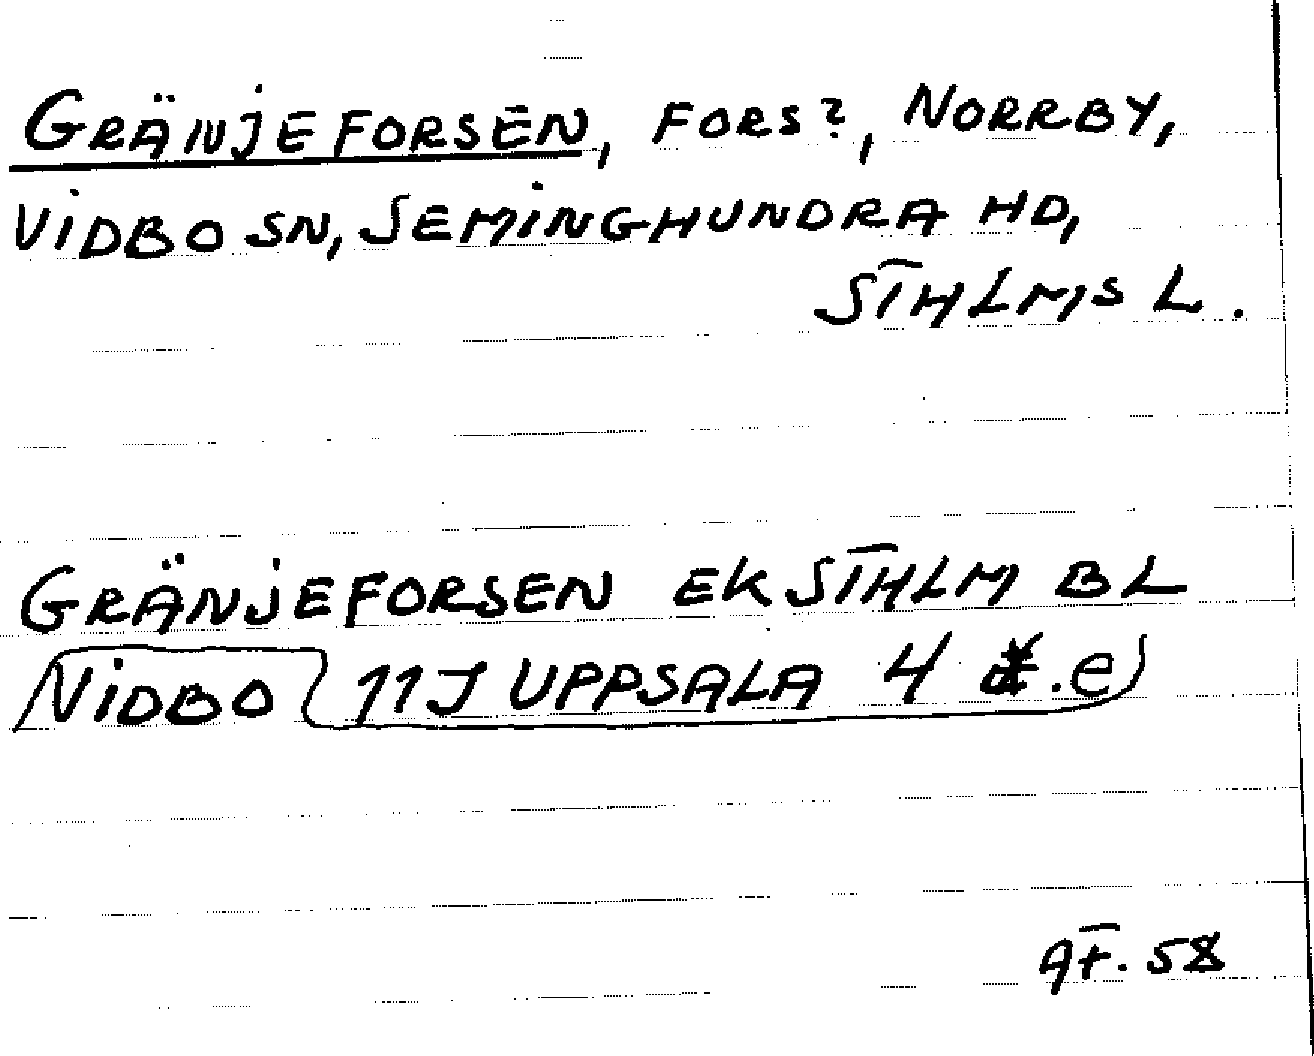 GRÄNJEFORSEN, FORS?, NORRBY,
VIDBO SN, SEMINGHUNDRA HD,
STHLMS L.
GRÄNJEFORSEN EK STHLM BL
VIDBO 11J UPPSALA 4 .e
AF. 58